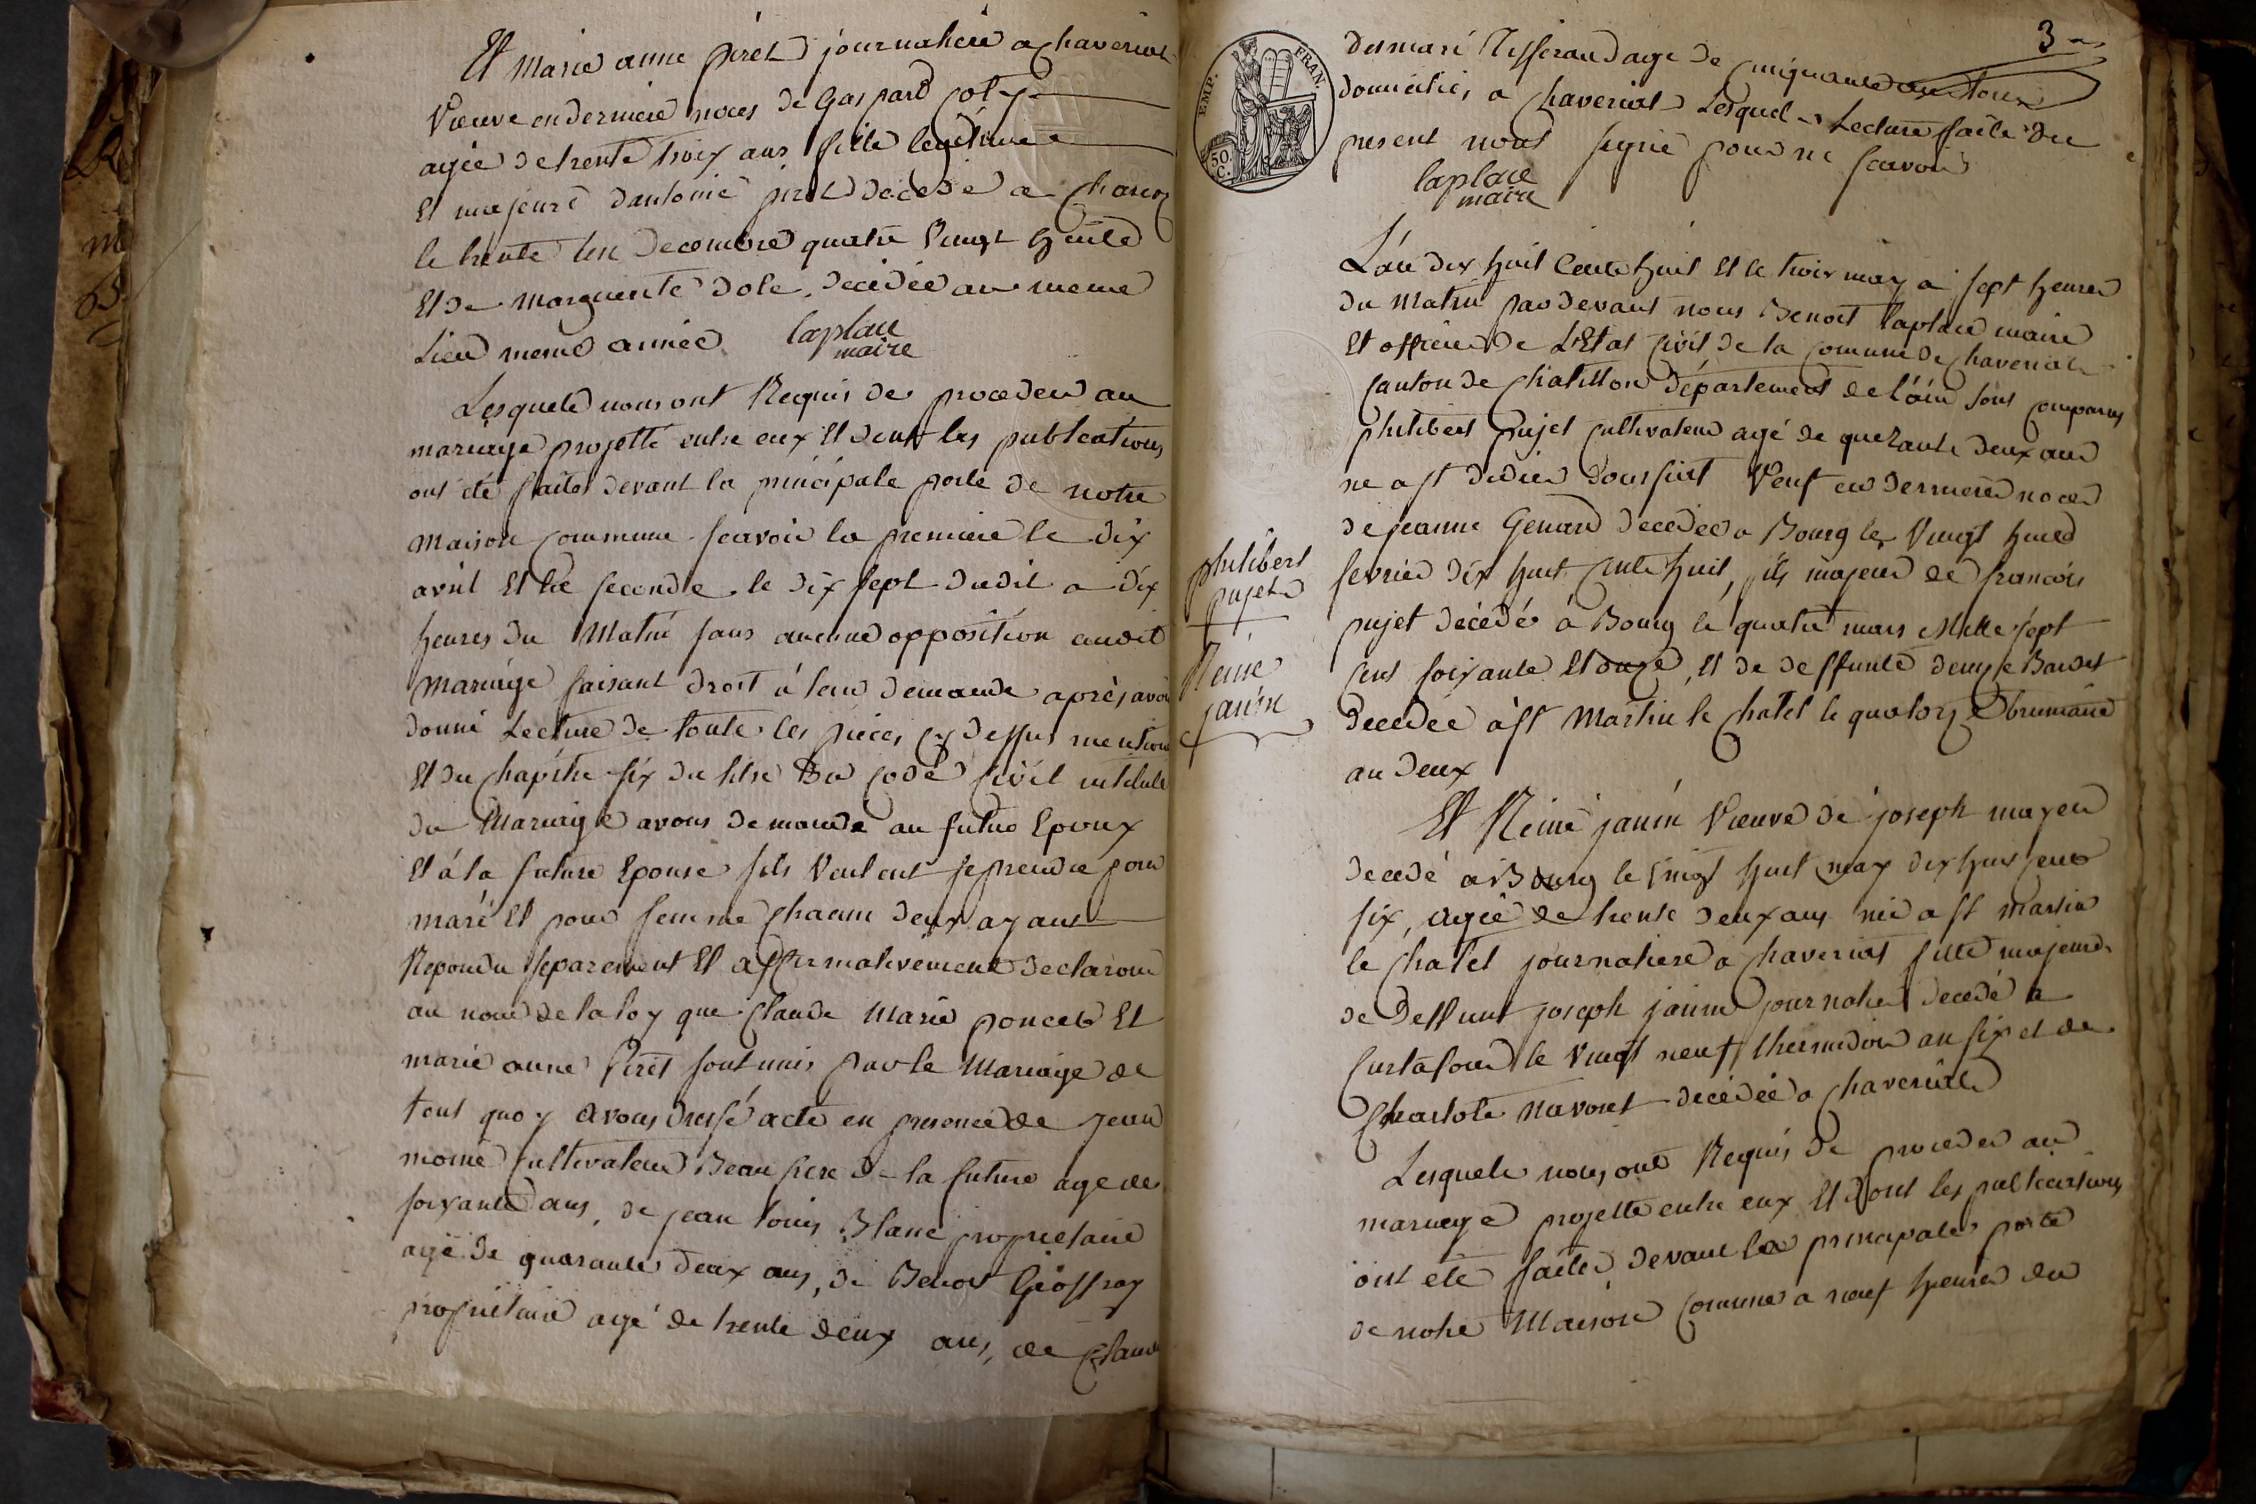 Et marie anne piret journaliere a chaveriat
Veuve en derniere noces de Gaspard coty
agée de trente troix ans fille legitime
Et majeure dantoine piret decede a
le trente un decembre quatre vingt huite
Et de marguerite dole, decedée au meme
Lieu meme année laplace
maire
Lesquels nous ont Requis de proceder au
mariage projetté entre eux Et dont les publications
ont été faites devant la principale porte de notre
maison commune scavoir la premiere le dix
avril Et la seconde le dix sept dudit a dix
heures du Matin sans aucune opposition audit
Mariage faisant droit á leur demande après avoir
donné Lecture de toute les pieces cy dessus mention
Et du chapitre six du titre Du code civil intitulé
du Mariage avons demandé au futur Epoux
Et á la future Epouse sils Veulent se prendre pour
mari Et pour femme chacun deux ayant
Repondu separement Et affirmativement declarons
au nom de la loy que Claude Marie poncet Et
marie anne piret sont unis par le Mariage de
tout quoy avons dressé acte en presence de jean
moine cultivateur Beau frere de la future age de
soixante ans, de jean louis Blanc proprietaire
agé de quarante deux ans, de Benoit Geoffray
proprietaire agé de trente deux ans, de Claude
3
desmari Tisserand age de cinquante
domicilies a chaveriat Lesquel Lecture faite du
present nont signé pour ne scavoir
laplace
maire
EMP. FRAN.
50.
C.
L'an dix huit cents huit Et le troix may a sept heures
du Matin pardevant nous Benoit laplace maire
Et officier de L'Etat civil de la commune de chaveriat
canton de chatillon département de l'áin sont comparus
philibert pujet cultivateur agé de quarante deux ans
ne a st didier Veuf en derniere noces
de jeanne Genard decedée a Bourg le Vingt huit
fevrier dix huit cents huit, fils majeur de francois
pujet décédé á Bourg le quatre mars Mille sept
cent soixante Et onze, Et de deffunte denise Baudet
decedee a st Martin le chatel le quatorze brumaire
an deux
philibert
pujet
Reine
janin
Et Reine janin Veuve de joseph mayer
decedé a Bourg le vingt huit may dix huit cent
six, agée de trente deux ans née a st martin
le chatel journaliere a chaveriat fille majeure
de Deffunt joseph janin journalier decedé a
Curtafond le vingt neuf thermidor an six et de
Charlote navoret decedée a chaveriat
Lesquels nous ont Requis de proceder au
mariage projetté entre eux Et dont les publications
ont été faites devant la principale porte
de notre Maison commune a neuf heures du